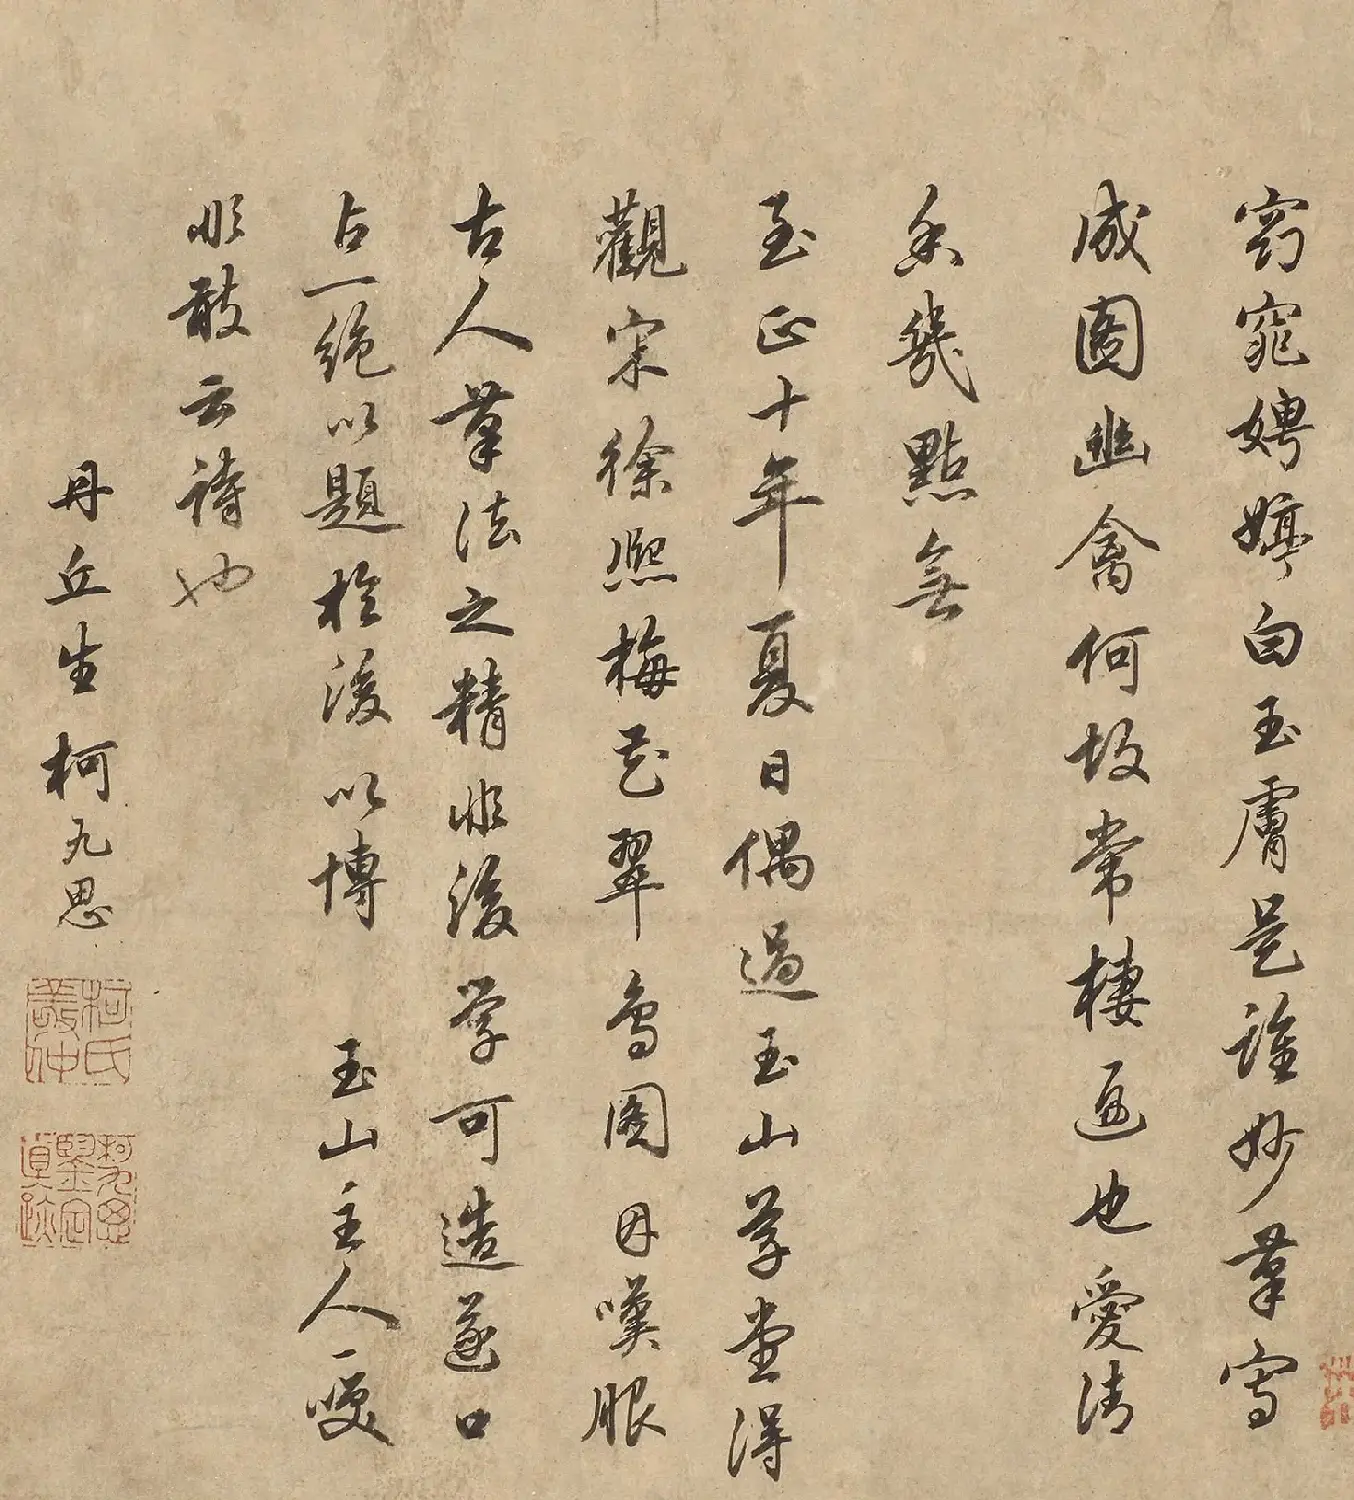 窈窕娉婷白玉膚是誰妙筆寫
成圖幽禽何故常棲逼也愛清
香幾點無
至正十年夏日偶過玉山草堂得
觀宋徐熙梅花翠鳥圖因嘆服
古人筆法之精非後學可造遂口
占一絕以題於後以博玉山主人一噱
非敢云詩也
丹丘生柯九思
柯氏敬仲
柯九思鑒定真跡